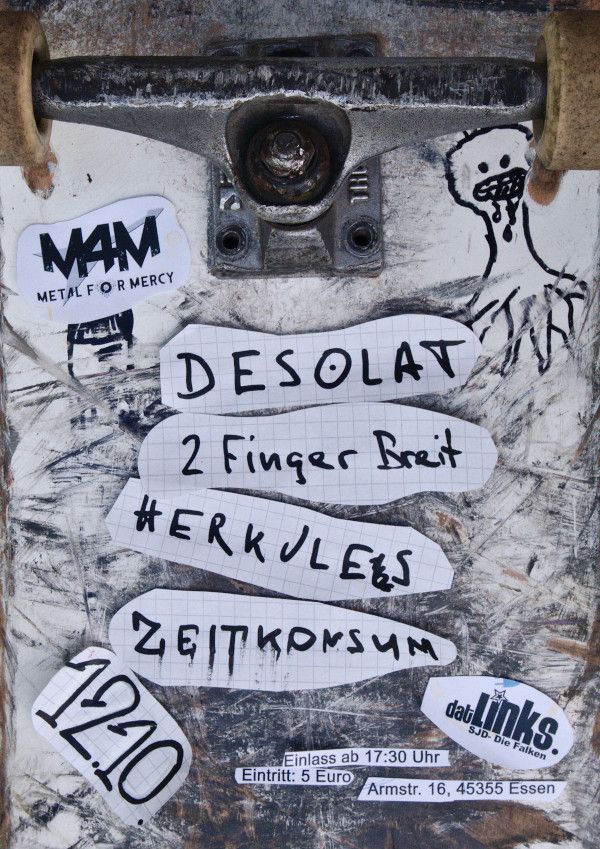 M4M
METAL FOR MERCY
DESOLAT
2 Finger Breit
HERKULES
ZEITKONSUM
12.10.
datLinks.
SJD- Die Falken
Einlass ab 17:30 Uhr
Eintritt: 5 Euro
Armstr. 16, 45355 Essen